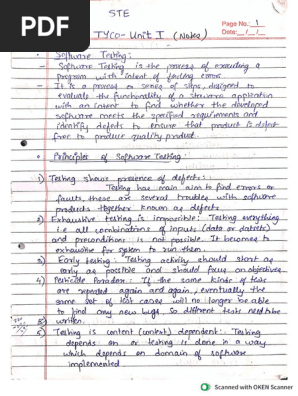 PDF
STE
Page No.: 1
Date: __/__/__
TYCO - Unit I (Notes)
Software Testing :
- Software Testing is the process of executing a
program with intent of finding errors
- It is a process or series of steps, designed to
evaluate the functionality of a software application
with an intent to find whether the developed
software meets the specified requirements and
identify defects to ensure that product is defect
free to produce quality product.
• Principles of Software Testing :
1) Testing shows presence of defects :
Testing has main aim to find errors or
faults, these are several troubles with software
products together known as defects.
2) Exhaustive testing is impossible : Testing everything
i.e all combinations of inputs (data or datasets)
and preconditions is not possible. It becomes to
exhaustive for system to run them.
3) Early testing : Testing activity should start as
early as possible and should focus on objectives
4) Pesticide Paradox : If the same kinds of tests
are repeated again and again, eventually the
same set of test cases will no longer be able
to find any new bugs. So different tests need to be
written.
5) Testing is content (context) dependent :- Testing
depends on or testing is done in a way
which depends on domain of software
implemented.
Scanned with OKEN Scanner